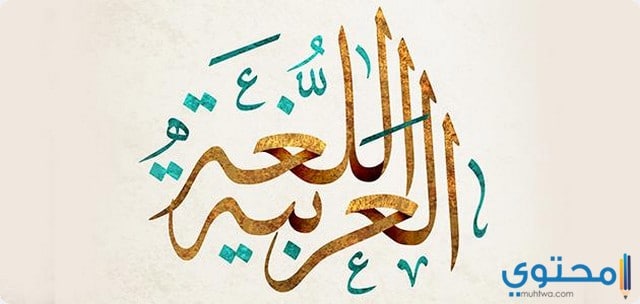 اللغة
العربية
محتوي
muhtwa.com